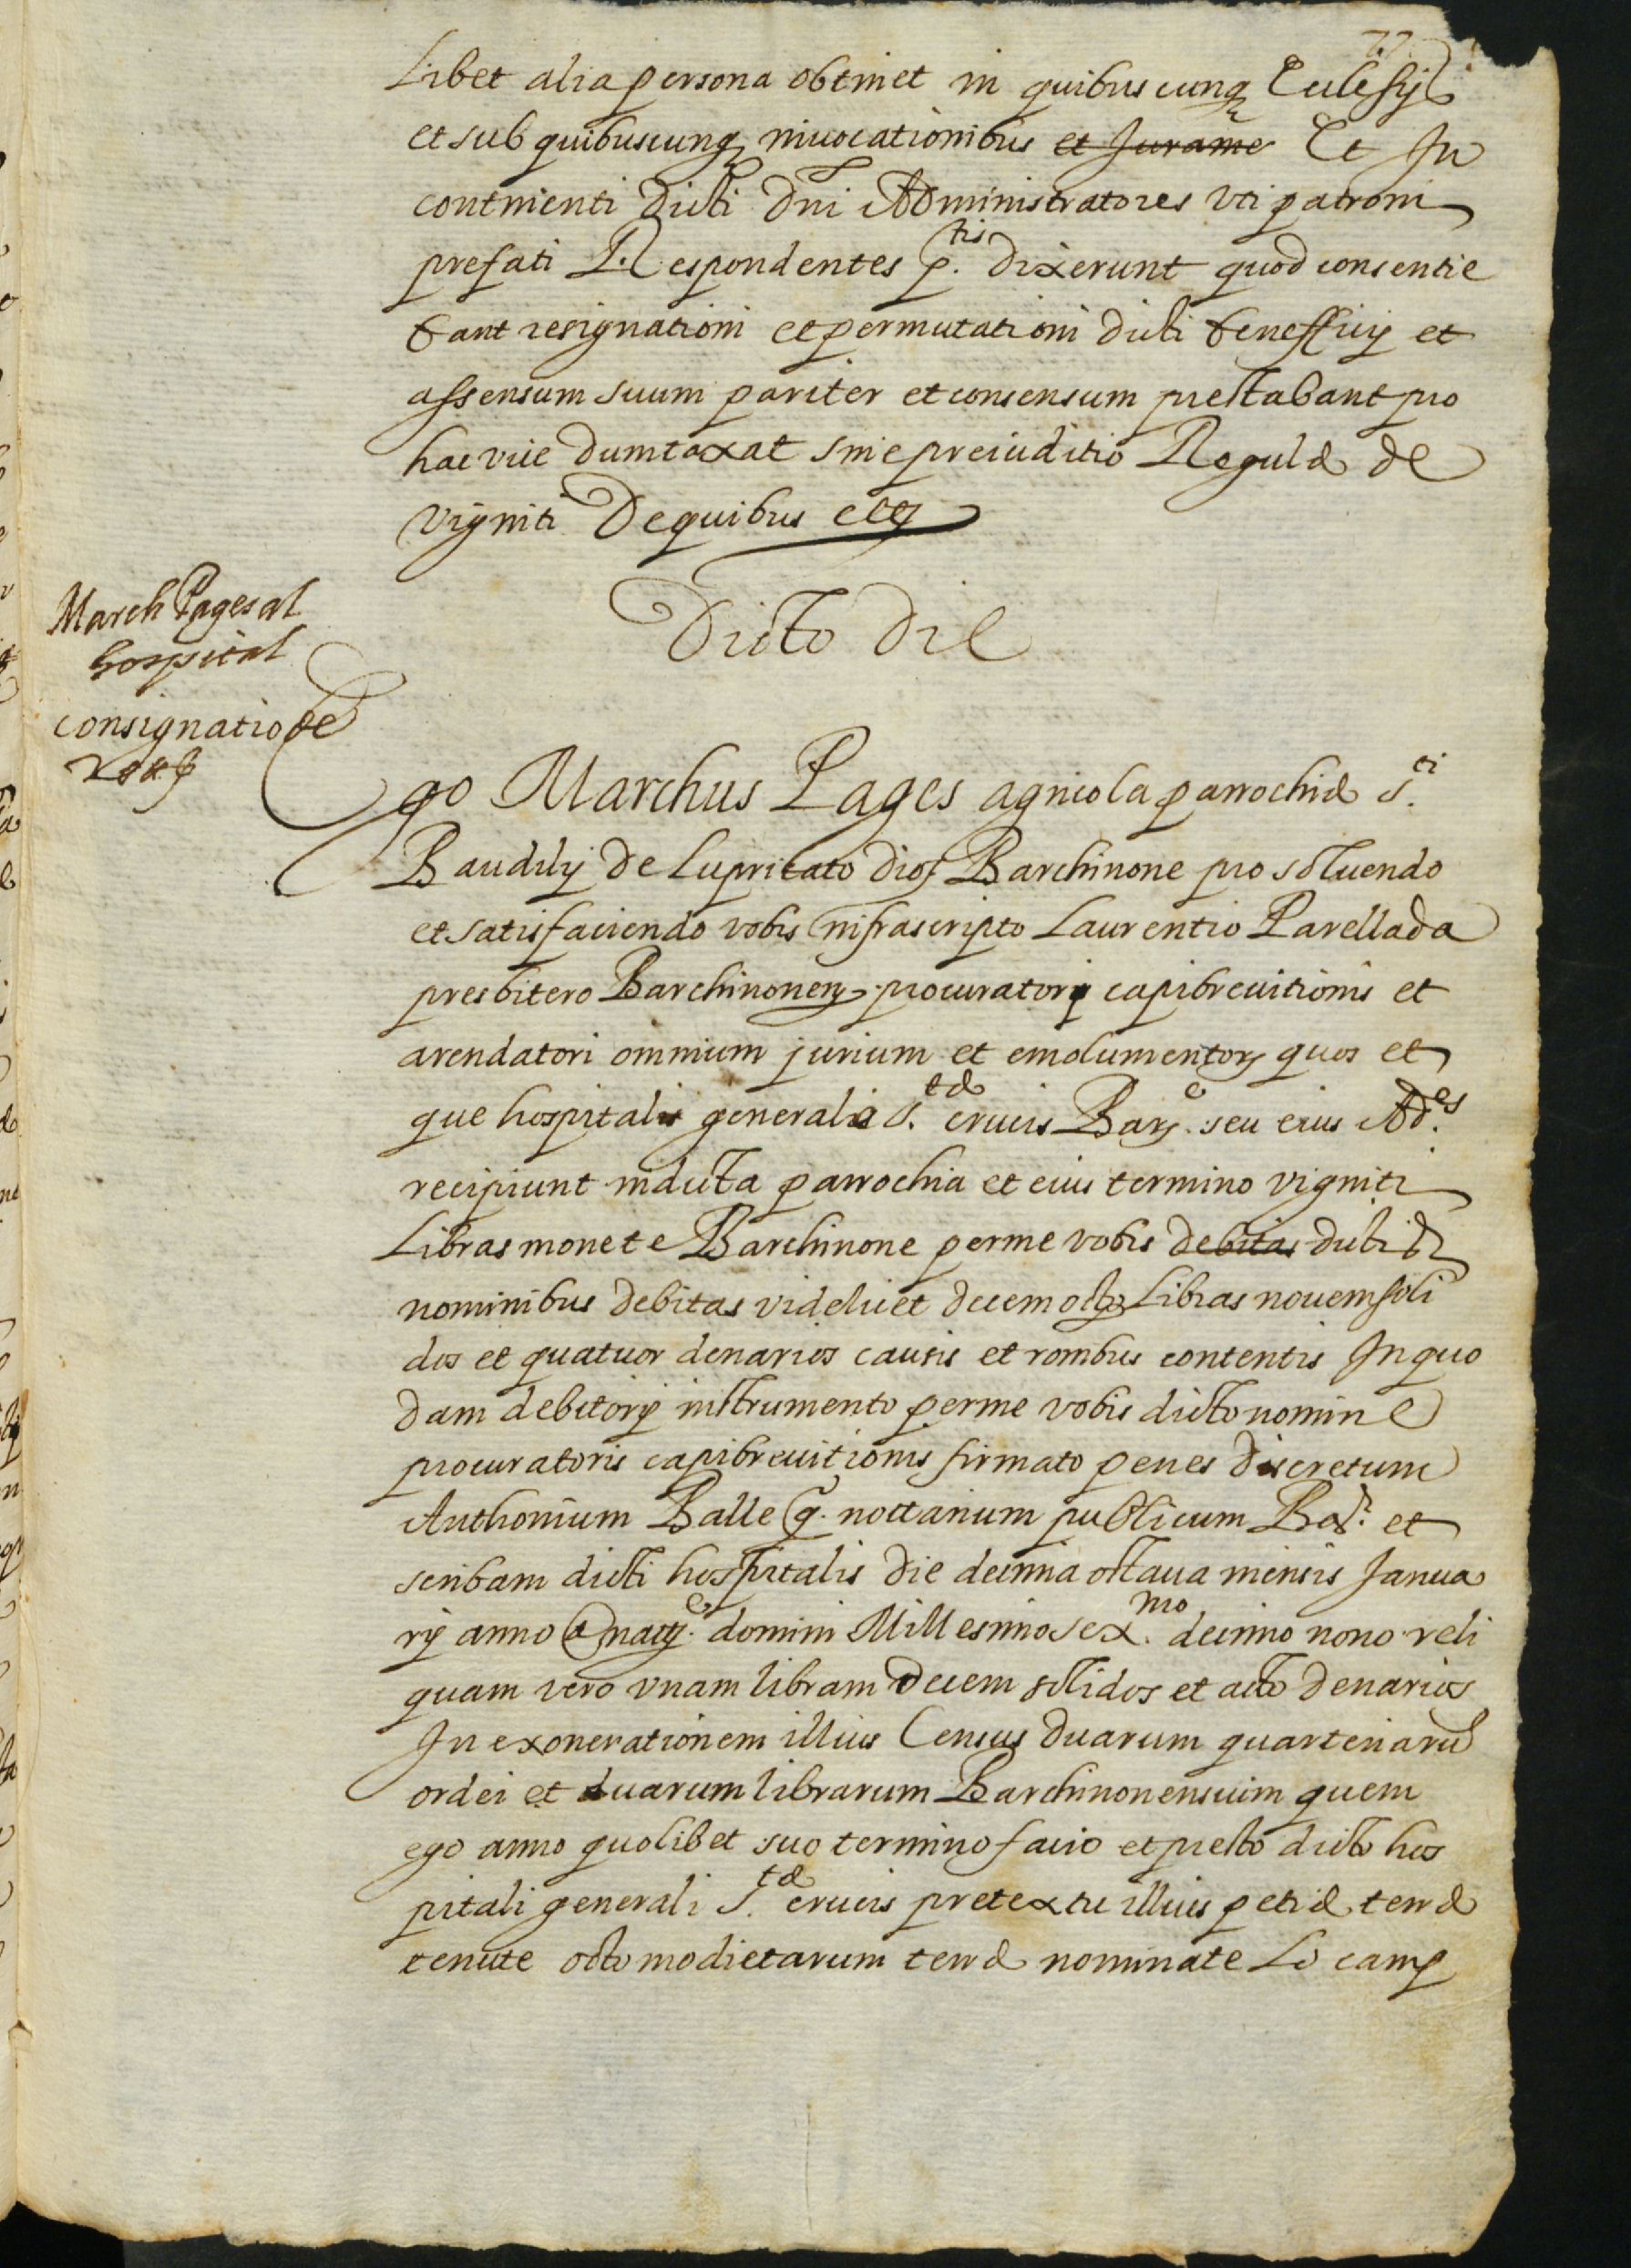 77
Libet alia persona obtinet in quibuscunq Ecclesijs
et sub quibuscunq invocationibus et Jurame Et In
continenti dicti dni Administratores vti patroni
prefati Respondentes p.tis dixerunt quod consentie
bant resignationi et permutationi dicti benefficij et
assensum suum pariter et consensum prestabant pro
hac vice dumtaxat sine preiuditio Regulæ de
viginti De quibus etc
Dicto die
March Pages al
hospital
consignatio de
Ego Marchus Pages agricola parrochiæ S.ti
Baudilij de Lupricato dios Barchinone pro soluendo
et satisfaciendo vobis infrascripto Laurentio Parellada
presbitero Barchinonen procuratori capibrevitionis et
arendatori omnium jurium et emolumentor quos et
que hospitalis generalis S.tæ crucis Bar.e seu eius Ad.es
recipiunt in dicta parrochia et eius termino viginti
Libras monete Barchinone per me vobis debitas dicti
nominibus debitas videlicet decem octo Libras novem soli
dos et quatuor denarios causis et ronibus contentis In quo
dam debitorij instrumento per me vobis dicto nomine
procuratoris capibrevitionis firmato penes discretum
Anthonium Batlle q. nottarium publicum Bar. et
scribam dicti hospitalis die decima octava mensis Janua
rij anno a nat.e domini Millesimo sex.mo decimo nono reli
quam vero vnam libram decem solidos et acto denarios
In exonerationem illius Census duarum quarteriaru
ordei et duarum librarum Barchinonensium quem
ego anno quolibet suo termino facio et presto dicto hos
pitali generali S.tæ crucis pretextu illius petiæ terræ
tenute octo modietarum terræ nominate Lo camp